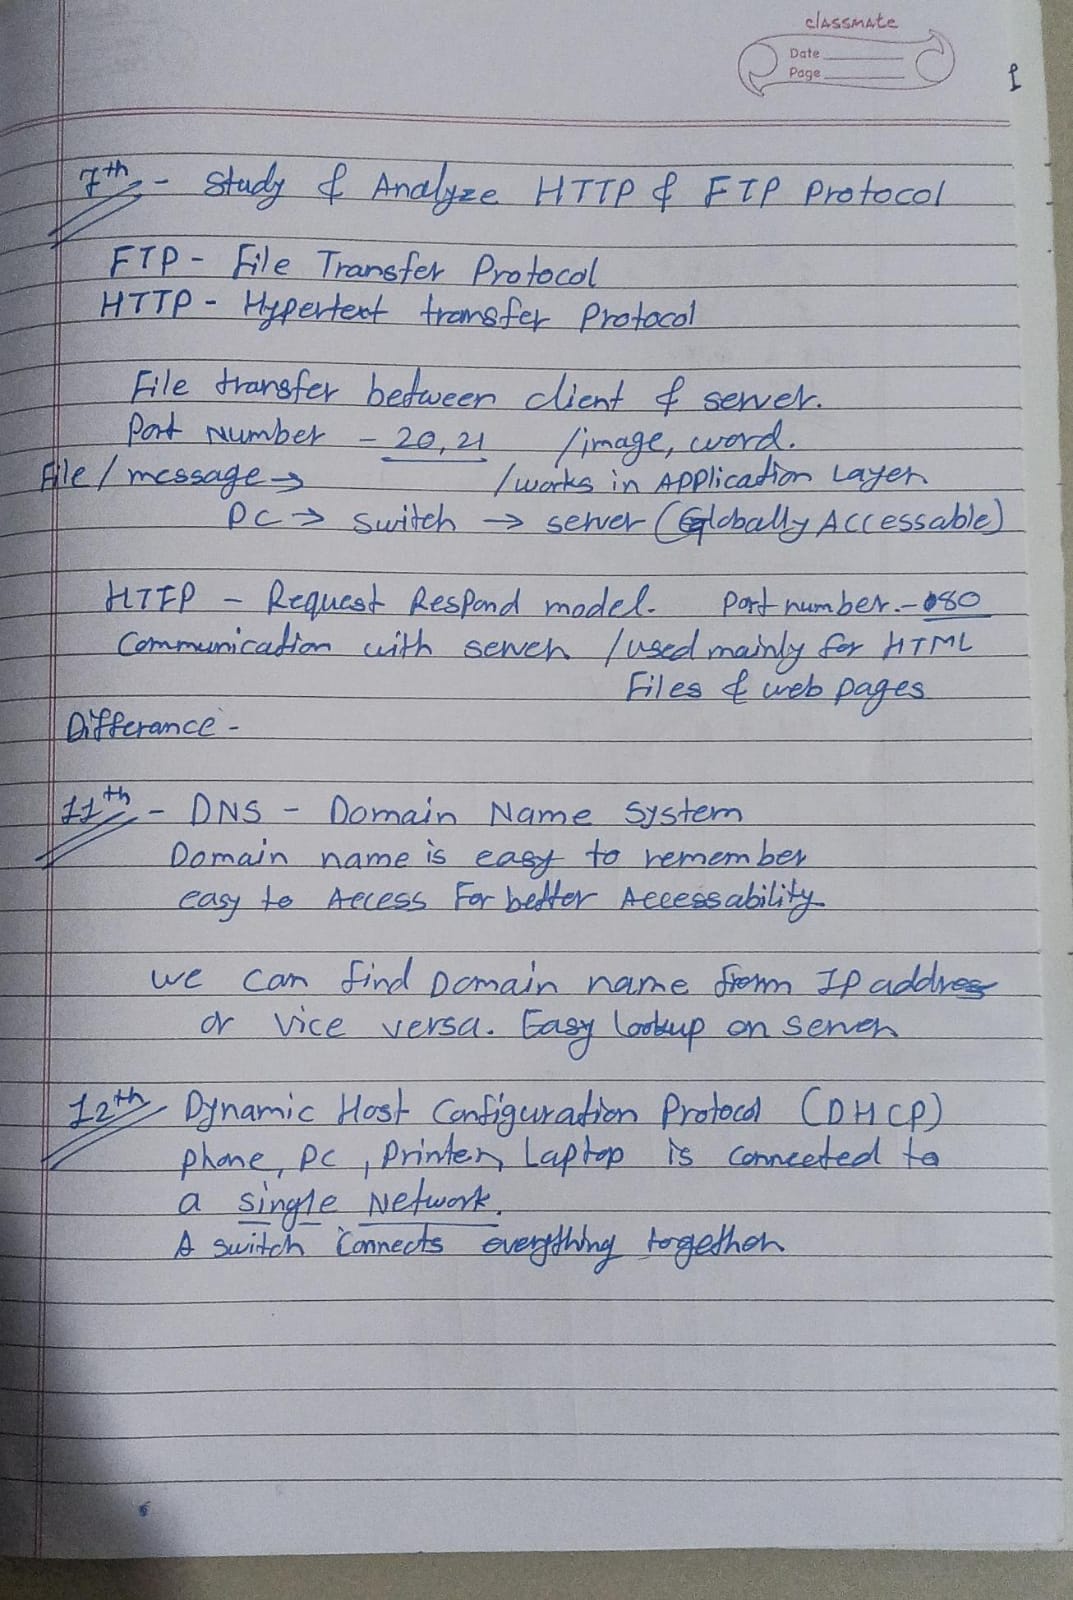 classmate
Date
Page
1
7th - Study & Analyze HTTP & FTP Protocol
FTP - File Transfer Protocol
HTTP - Hypertext transfer Protocol
File transfer between client & server.
Port Number - 20, 21 /image, word.
File / message → /works in Application Layer
PC → switch → server (Globally Accessable)
HTTP - Request Respond model. Port number. - 80
Communication with server /used mainly for HTML
Files & web pages
Differance -
11th - DNS - Domain Name System
Domain name is easy to remember
easy to Access For better Accessability
we can find Domain name from IP address
or vice versa. Easy lookup on server
12th Dynamic Host Configuration Protocol (DHCP)
phone, PC, Printer, Laptop is connected to
a single Network.
A switch connects everything together